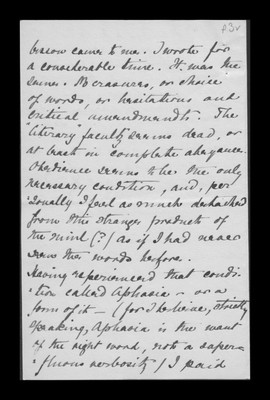 A3v
beacon came to me. I wrote for
a considerable time. It was the
same. No erasures, or choice
of words, or hesitations and
critical amendments. The
"literary faculty" seems dead, or
at least in complete abeyance.
Obedience seems to be the only
necessary condition, and, per
sonally I feel as much detached
from this strange product of
the mind (?) as if I had never
seen the words before.
Having experienced that condi-
-tion called Aphasia - or a
form of it - (for I believe, strictly
speaking, Aphasia is the want
of the right word, not a super-
-fluous verbosity) I paid